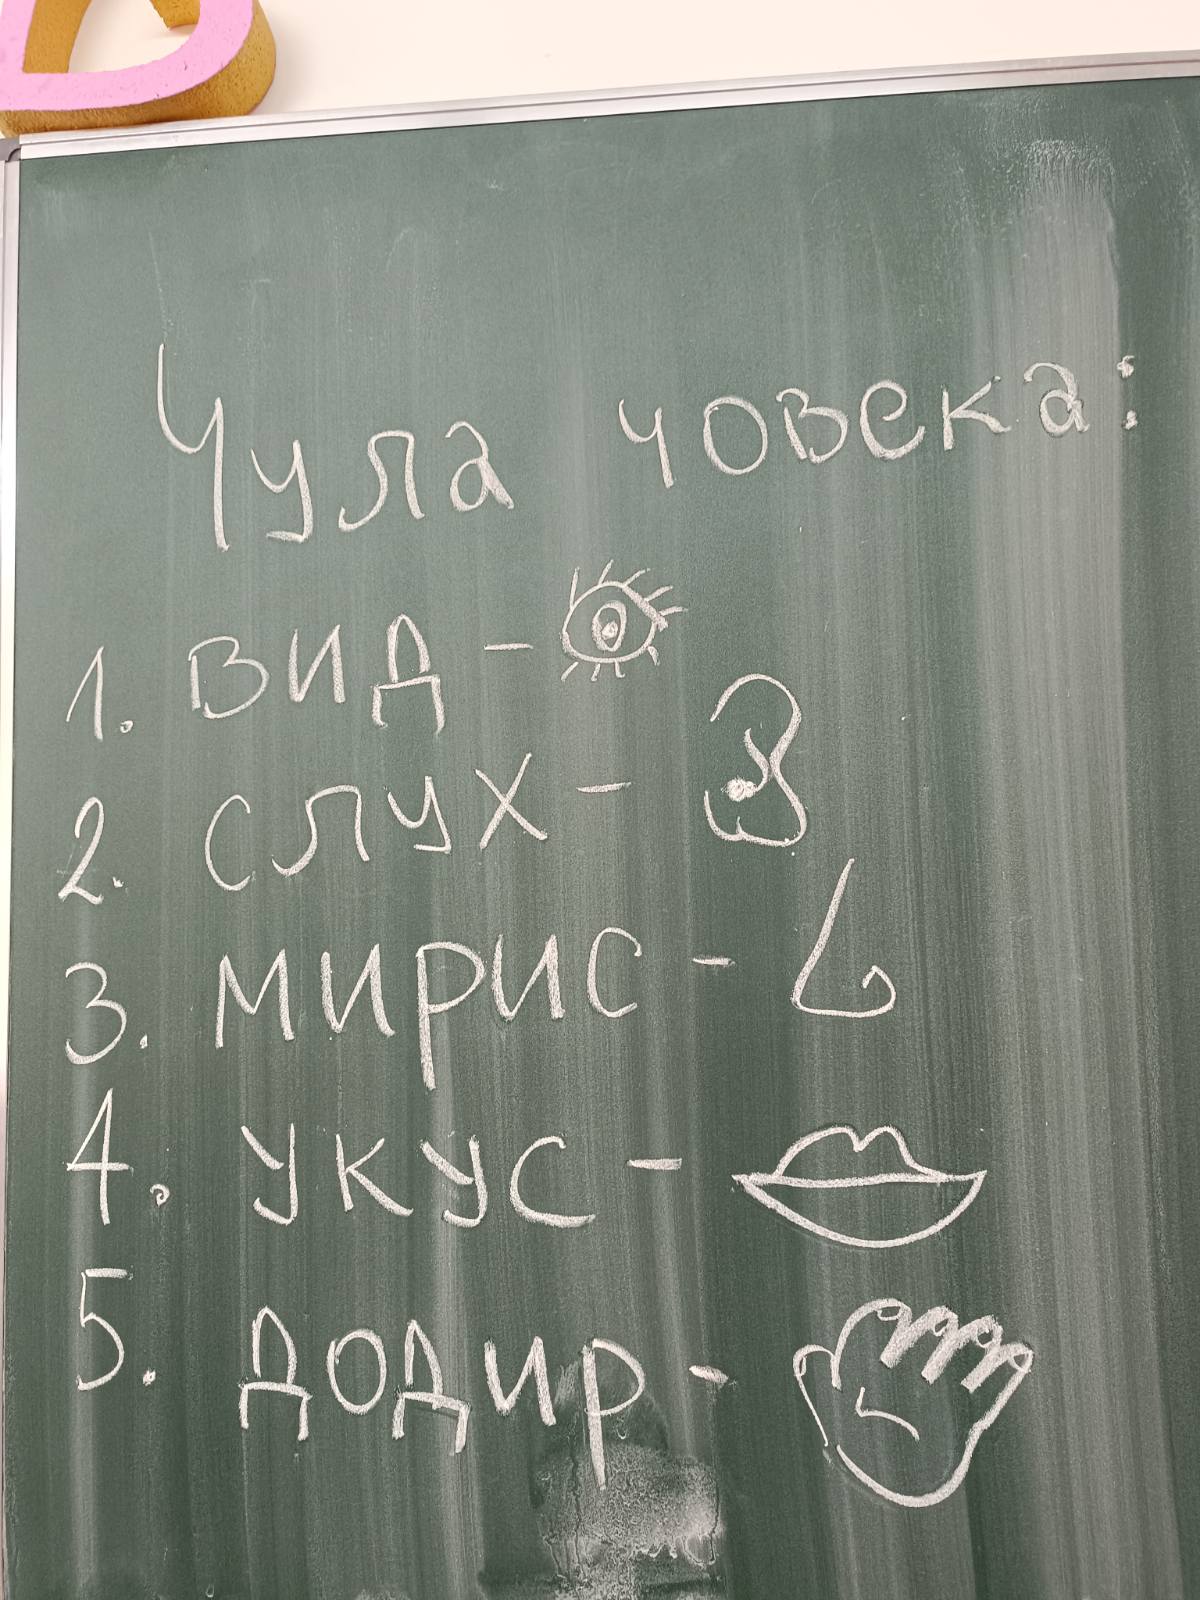 Чула човека:
1. вид -
2. слух -
3. мирис -
4. укус -
5. додир -